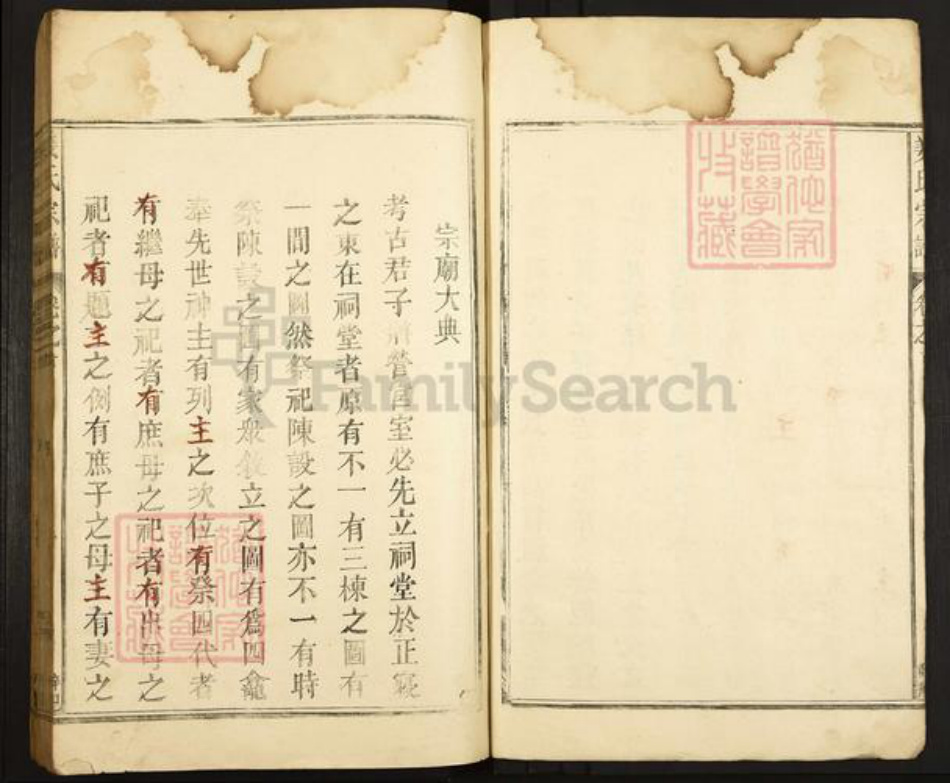 宗廟大典
考古君子將營宮室必先立祠堂於正寢
之東在祠堂者原有不一有三棟之圖有
一間之圖然祭祀陳設之圖亦不一有時
祭陳設之圖有家眾敘立之圖有爲四龕
奉先世神主有列主之次位有祭四代者
有繼母之祀者有庶母之祀者有出母之
祀者有題主之例有庶子之母主有妻之
氏宗譜
氏宗譜
譜學會
收藏
FamilySearch